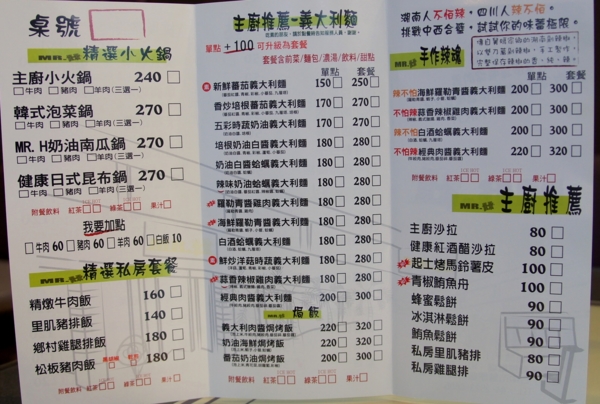 桌號
MR. 精選小火鍋
主廚小火鍋 240
牛肉 豬肉 羊肉(三選一)
韓式泡菜鍋 270
牛肉 豬肉 羊肉(三選一)
MR. H奶油南瓜鍋 270
牛肉 豬肉 羊肉(三選一)
健康日式昆布鍋 270
牛肉 豬肉 羊肉(三選一)
附餐飲料 紅茶 綠茶 果汁
我要加點
牛肉 60 豬肉 60 羊肉 60 白飯 10
MR. 精選私房套餐
精燉牛肉飯 160
里肌豬排飯 140
鄉村雞腿排飯 180
松板豬肉飯 180
附餐飲料 紅茶 綠茶 果汁
主廚推薦-義大利麵
單點 +100 可升級為套餐
套餐含前菜/麵包/濃湯/飲料/甜點
單點 套餐
新鮮蕃茄義大利麵 150 250
香炒培根蕃茄義大利麵 170 270
五彩時蔬奶油義大利麵 170 270
培根奶油白醬義大利麵 180 280
奶油白醬蛤蠣義大利麵 180 280
辣味奶油蛤蠣義大利麵 180 280
羅勒青醬雞肉義大利麵 180 280
海鮮羅勒青醬義大利麵 180 280
白酒蛤蠣義大利麵 180 280
鮮炒洋菇時蔬義大利麵 180 280
蒜香辣椒雞肉義大利麵 180 280
經典肉醬義大利麵 200 300
MR. 焗飯
義大利肉醬焗烤飯 220 320
奶油海鮮焗烤飯 220 320
蕃茄奶油焗烤飯 200 300
附餐飲料 紅茶 綠茶 果汁
湖南人不怕辣,四川人辣不怕
挑戰中西合璧,試試你的味蕾極限。
MR. 手作辣魂
單點 套餐
辣不怕海鮮羅勒青醬義大利麵 200 300
不怕辣蒜香辣椒雞肉義大利麵 200 300
辣不怕白酒蛤蠣義大利麵 200 300
不怕辣經典肉醬義大利麵 220 320
附餐飲料 紅茶 綠茶 果汁
MR. 主廚推薦
主廚沙拉 80
健康紅酒醋沙拉 80
起士烤馬鈴薯皮 100
青椒鮪魚舟 100
蜂蜜鬆餅 90
冰淇淋鬆餅 90
鮪魚鬆餅 90
私房里肌豬排 80
私房雞腿排 90